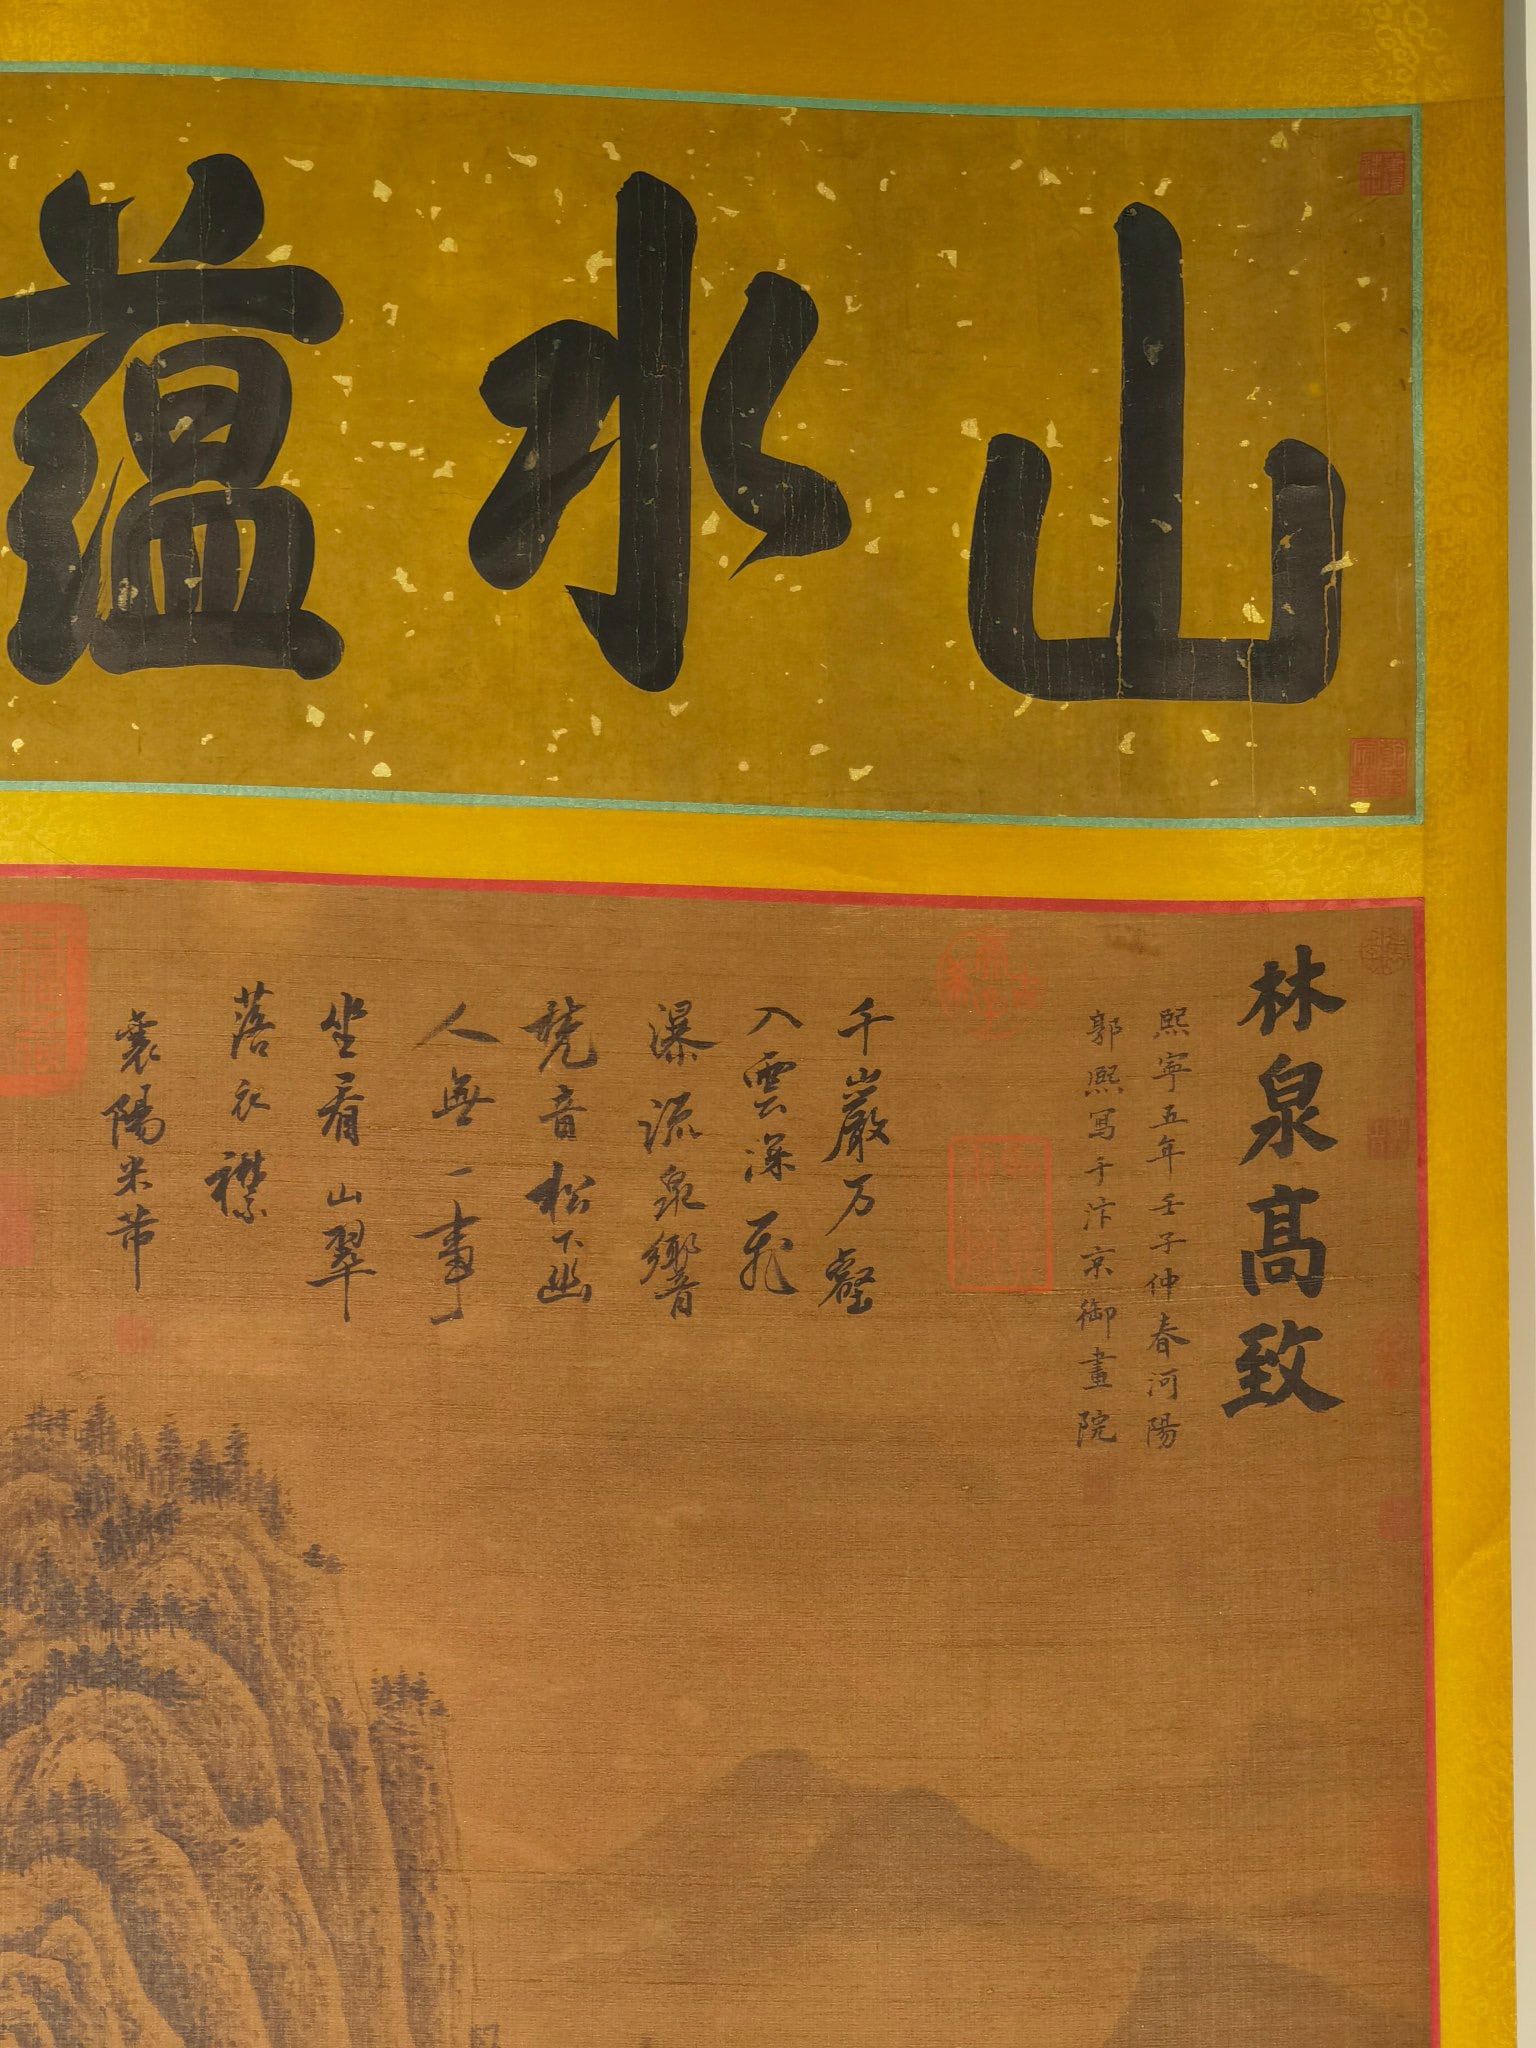 山水蘊
林泉高致
熙寧五年壬子仲春河陽
郭熙寫于汴京御畫院
千巖万壑
入雲深飛
瀑流泉響
梵音松下幽
人無一事
坐看山翠
落衣襟
襄陽米芾